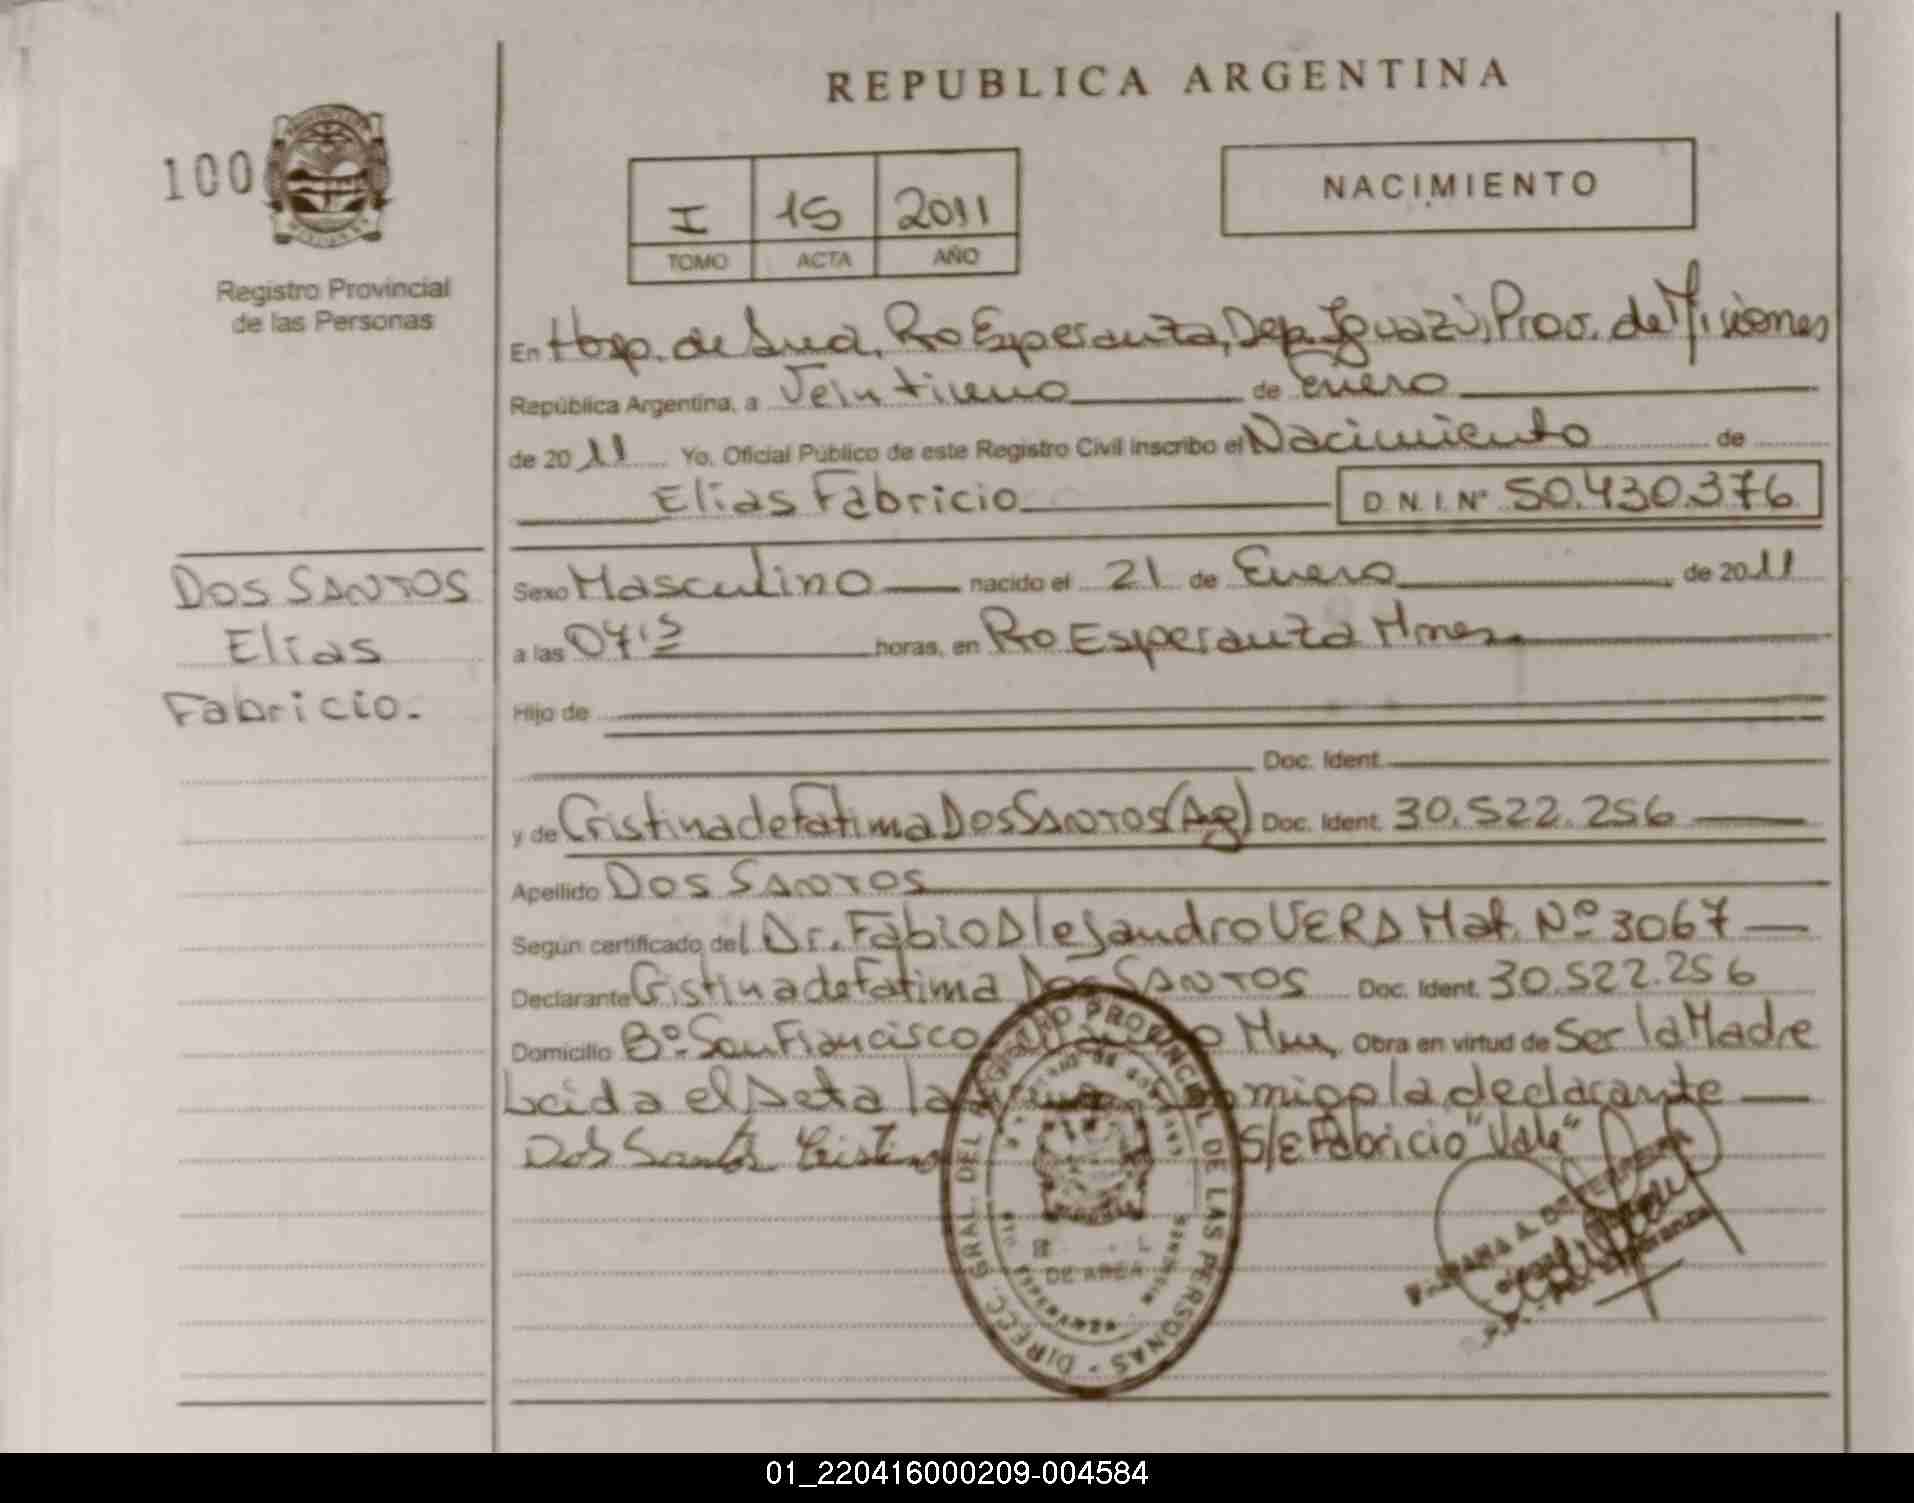 REPUBLICA ARGENTINA
100
Registro Provincial
de las Personas
I 15 2011
TOMO ACTA AÑO
NACIMIENTO
En Hosp. de Area, Pto Esperanza, Dep. Iguazú, Prov. de Misiones
República Argentina, a Veintiuno de Enero
de 2011 Yo, Oficial Público de este Registro Civil inscribo el Nacimiento de
Elias Fabricio D.N.I. Nº 50.430.376
DOS SANTOS
Elias
Fabricio.
Sexo Masculino nacido el 21 de Enero de 2011
a las horas, en Pto Esperanza Mnes.
Hijo de
Doc. Ident.
y de Cristina de Fatima DOS SANTOS (Ag) Doc. Ident. 30.522.256
Apellido DOS SANTOS
Según certificado del Dr. Fabio Alejandro VERA Mat. Nº 3067
Declarante Cristina de Fatima DOS SANTOS Doc. Ident. 30.522.256
Domicilio Bº San Francisco Obra en virtud de Ser la Madre
Leida el Acta la conmigo la declarante
Dos Santos Cristina S/E Fabricio "Vale"
DIRECC. GRAL. DEL REGISTRO PROVINCIAL DE LAS PERSONAS
DE AREA
01_220416000209-004584